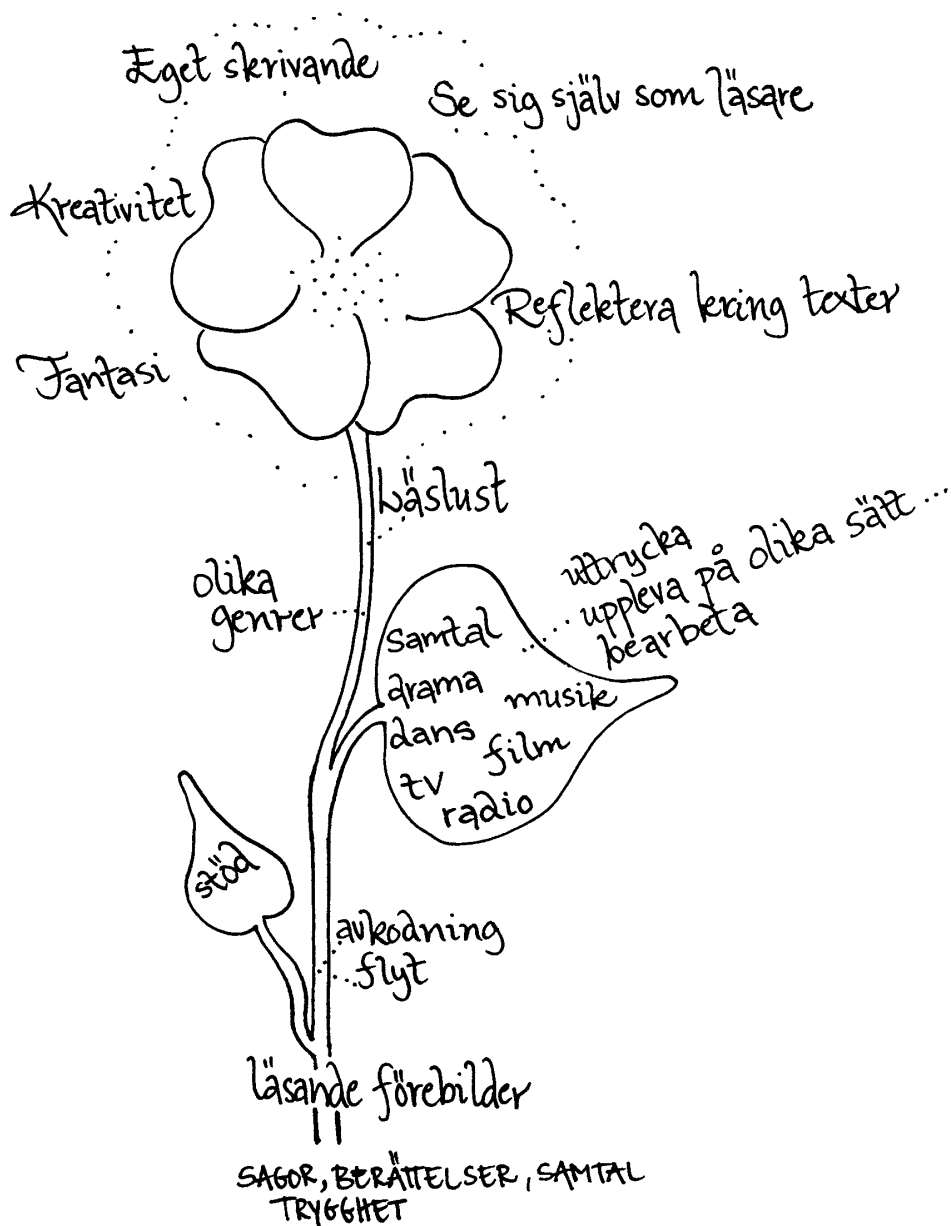 Eget skrivande
Se sig själv som läsare
Kreativitet
Reflektera kring texter
Fantasi
Läslust
olika
genrer
uttrycka
uppleva på olika sätt ...
bearbeta
samtal
drama
musik
dans
film
tv
radio
stöd
avkodning
flyt
läsande förebilder
SAGOR, BERÄTTELSER, SAMTAL
TRYGGHET